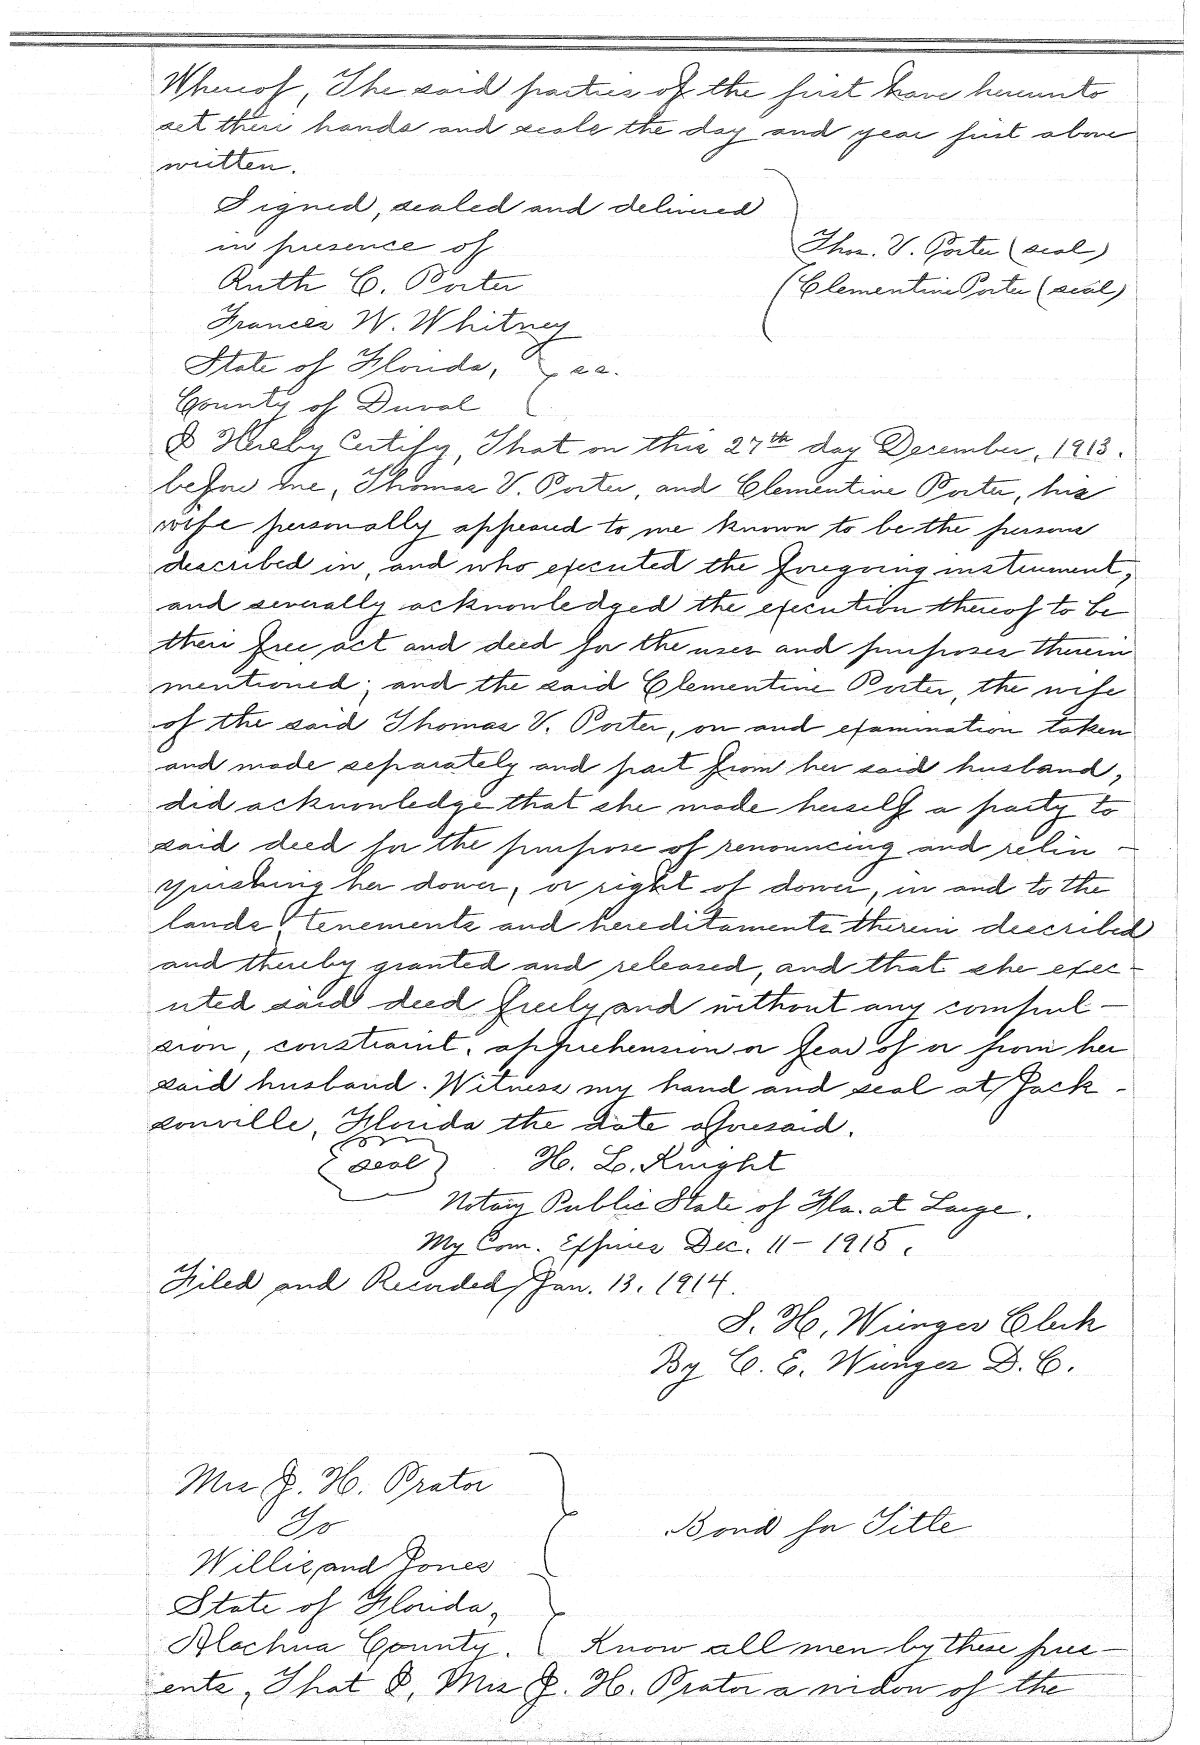 Whereof, The said parties of the first have hereunto
set their hands and seals the day and year first above
written.
Signed, sealed and delivered
in presence of
Thos. V. Porter (seal)
Ruth C. Porter
Clementine Porter (seal)
Frances W. Whitney
State of Florida, ss.
County of Duval
I Hereby Certify, That on this 27th day December, 1913.
before me, Thomas V. Porter, and Clementine Porter, his
wife personally appeared to me known to be the persons
described in, and who executed the foregoing instrument,
and severally acknowledged the execution thereof to be
their free act and deed for the uses and purposes therein
mentioned; and the said Clementine Porter, the wife
of the said Thomas V. Porter, on and examination taken
and made separately and part from her said husband,
did acknowledge that she made herself a party to
said deed for the purpose of renouncing and relin-
quishing her dower, or right of dower, in and to the
lands, tenements and hereditaments therein described
and thereby granted and released, and that she exec-
uted said deed freely and without any compul-
sion, constraint, apprehension or fear of or from her
said husband. Witness my hand and seal at Jack-
sonville, Florida the date aforesaid.
seal H. L. Knight
Notary Public State of Fla. at Large.
My Com. Expires Dec. 11-1915.
Filed and Recorded Jan. 13. 1914.
S. H. Wienges Clerk
By C. E. Wienges D. C.
Mrs J. H. Prator
To
Bond for Title
Willis and Jones
State of Florida,
Alachua County. Know all men by these pres-
ents, That I, Mrs J. H. Prator a widow of the